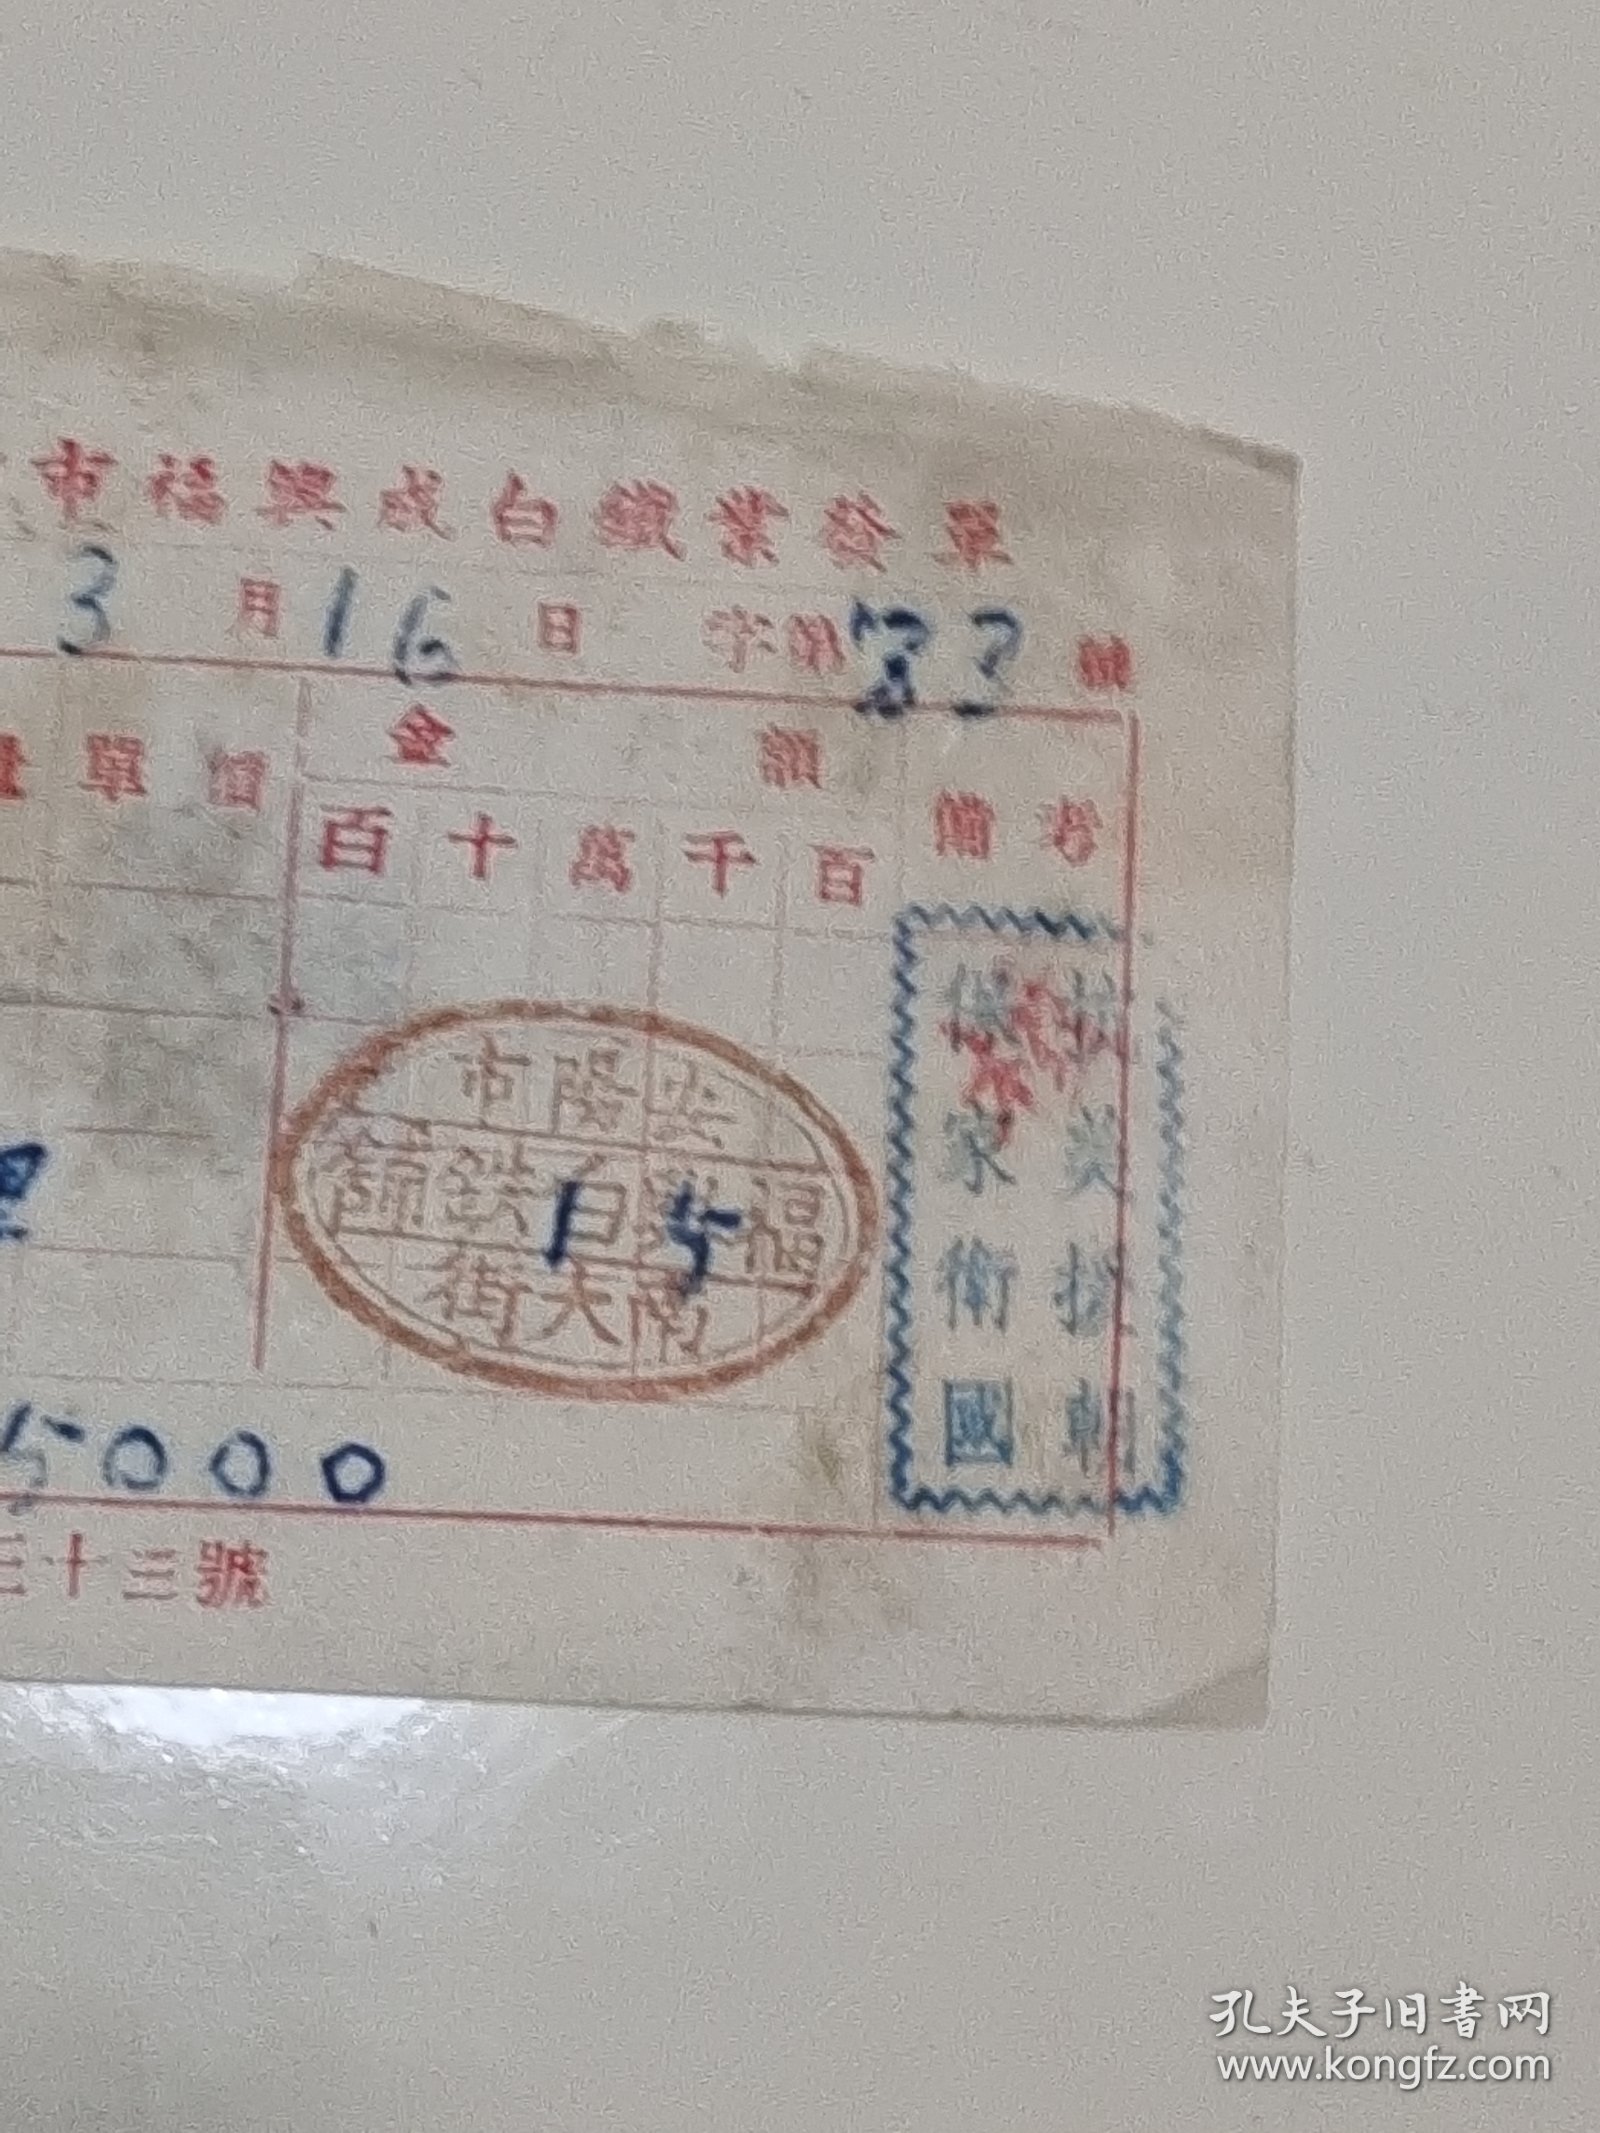 市福興成白鐵業發單
3月16日 字第33號
量 單價 金額 備考
百十萬千百
安陽市
福興白鉄鋪
南大街
15
抗美援朝
保家衛國
5000
三十三號
孔夫子旧書网
www.kongfz.com